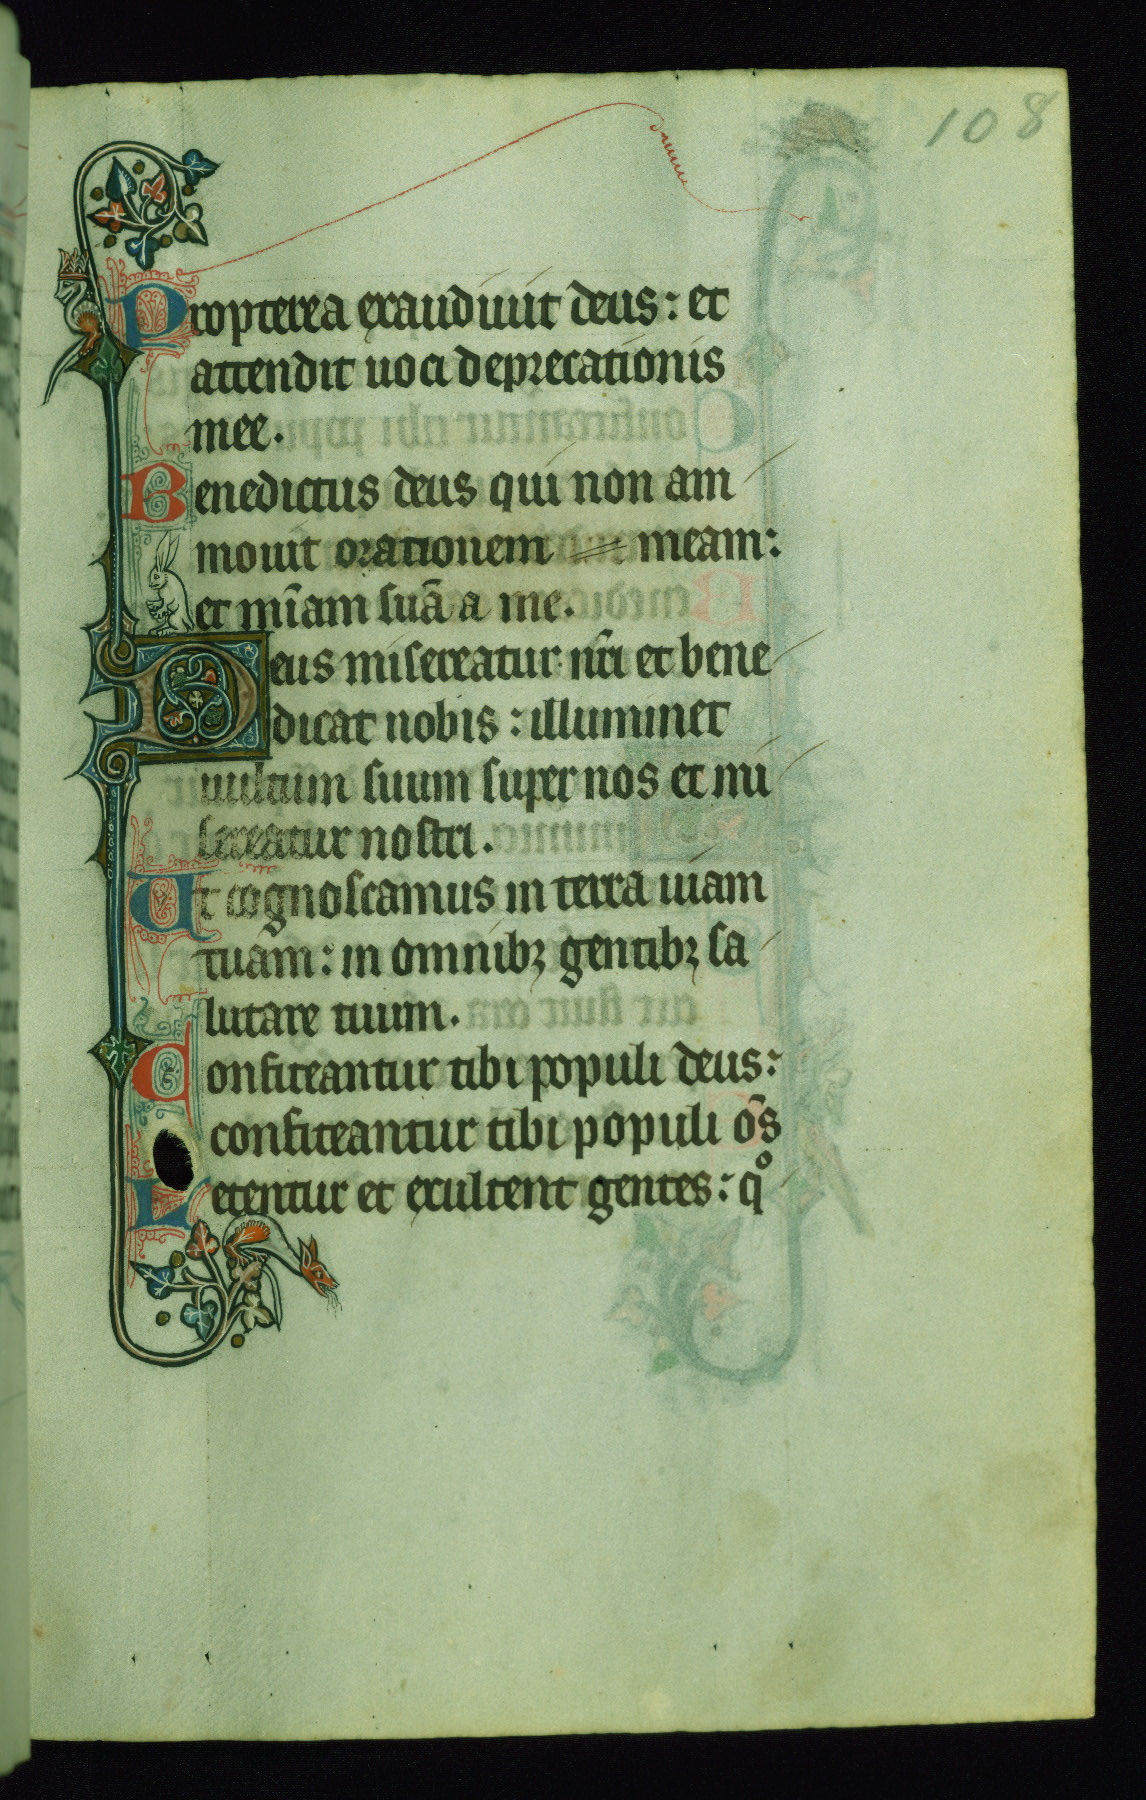 108
Propterea exaudiuit deus : et
attendit uoci deprecationis
mee .
Benedictus deus qui non am
mouit orationem meam :
et mīam suā a me .
Deus misereatur nr̄i et bene
dicat nobis : illuminet
uultum suum super nos et mi
sereatur nostri .
Ut cognoscamus in terra uiam
tuam : in omnibꝫ gentibꝫ sa
lutare tuum .
Confiteantur tibi populi deus :
confiteantur tibi populi om̄s
Letentur et exultent gentes : qͦ